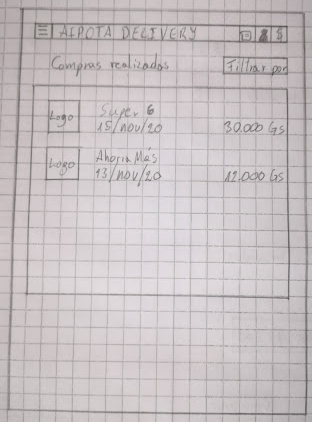 AIPOTA DELIVERY
Compras realizadas
Filtrar por
Logo
Super 6
15/nov/20
30.000 Gs
Logo
Ahorra Más
13/nov/20
12.000 Gs